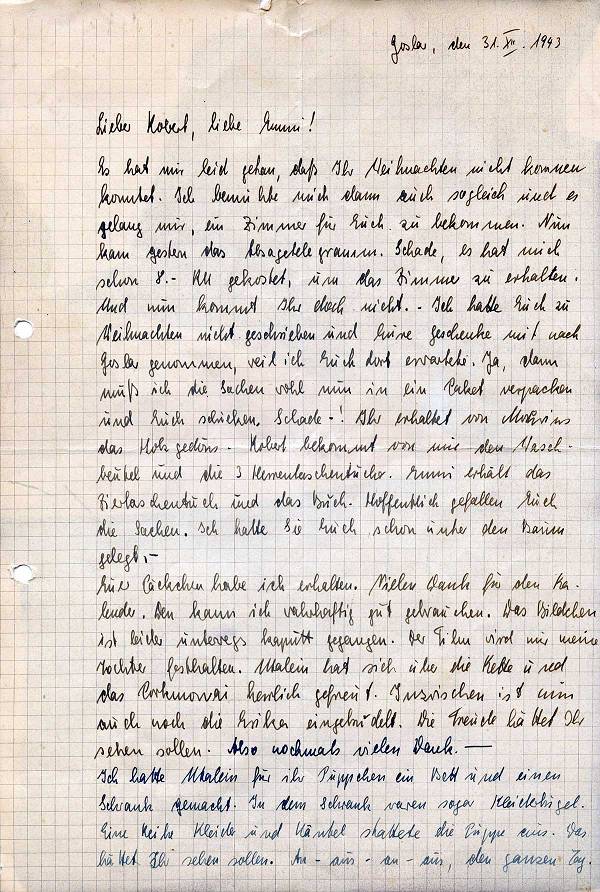 Goslar, den 31. XII. 1943
Lieber Robert, liebe Emmi!
Es hat mir leid getan, daß Ihr Weihnachten nicht kommen
konntet. Ich bemühte mich dann auch sogleich und es
gelang mir, ein Zimmer für Euch zu bekommen. Nun
kam gestern das Absagetelegramm. Schade, es hat mich
schon 8.- RM gekostet, um das Zimmer zu erhalten.
Und nun kommt Ihr doch nicht. - Ich hatte Euch zu
Weihnachten nicht geschrieben und Eure Geschenke mit nach
Goslar genommen, weil ich Euch dort erwartete. Ja, dann
muß ich die Sachen wohl nun in ein Paket verpacken
und Euch schicken. Schade -! Ihr erhaltet von
das Holzgedöns. Robert bekommt von mir den Wasch-
beutel und die 3 Herrentaschentücher. Emmi erhält das
Ziertaschentuch und das Buch. Hoffentlich gefallen Euch
die Sachen. Ich hatte Sie Euch schon unter den Baum
gelegt.-
Euer Päckchen habe ich erhalten. Vielen Dank für den Ka-
lender. Den kann ich wahrhaftig gut gebrauchen. Das Bildchen
ist leider unterwegs kaputt gegangen. Der Film wird mir meine
Tochter festhalten. Utalein hat sich über die Kette und
das herrlich gefreut. Inzwischen ist nun
auch noch die Erika eingetrudelt. Die Freude hättet Ihr
sehen sollen. Also nochmals vielen Dank. —
Ich hatte Utalein für ihr Püppchen ein Bett und einen
Schrank gemacht. In dem Schrank waren sogar Kleiderbügel.
Eine Reihe Kleider und Mäntel stattete die Puppe aus. Das
hättet Ihr sehen sollen. An - aus - an - aus, den ganzen Tag.